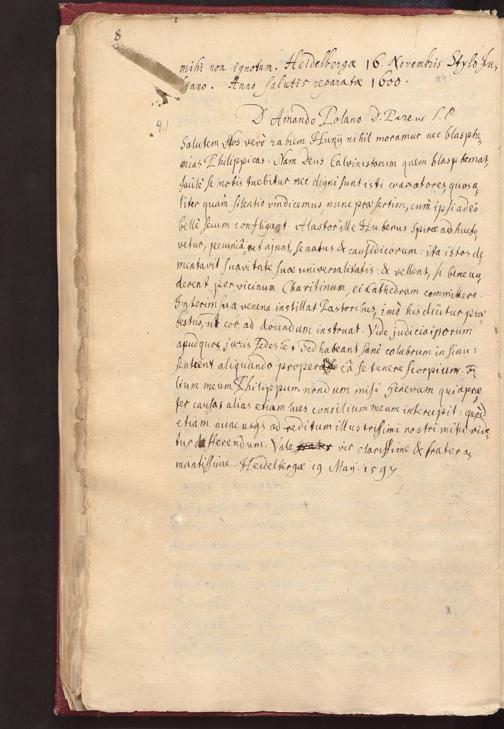 8
mihi non ignotum. Heidelbergæ 16. Novembris Stylo Ju,
liano. Anno salutis reparatæ 1600.
4.) D. Amando Polano D. Pareus S. P.
Salutem. Nos verò rabiem Hunij nihil moramur nec blasphe,
mias Philippicas. Nam Deus Calvinistarum quem blasphemat,
facilè se nobis tuebitur nec digni sunt isti
liter quàm silentio vindicemus, nunc præsertim, cum ipsi adeò
bellè secum confligant. Alastor ille Huberus Spiræ adhuc fo,
vetur, pecuniâ, ut ajunt, senatus & causidicorum: ita istos de
mentavit suavitate suæ universalitatis: & vellent, si
derent pervicinum Charitinum, ei Cathedram committere.
Interim sua venena instillat Pastoribus, imò his dicitur præ
fectus, ut eos ad docendum instruat. Vide judicia
apud quos juris sedes est. Sed habeant sanè colubrum in sinu:
sentient aliquando se tenere scorpium. Fi,
lium meum Philippum nondum misi Genevam quia præ
ter causas alias etiam lues consilium meum intercepit: quod
etiam nunc usque ad reditum illustrissimi nostri mihi vide
tur differendum. Vale vir clarissime & frater a,
mantissime. Heidelbergæ 19 Maij 1597